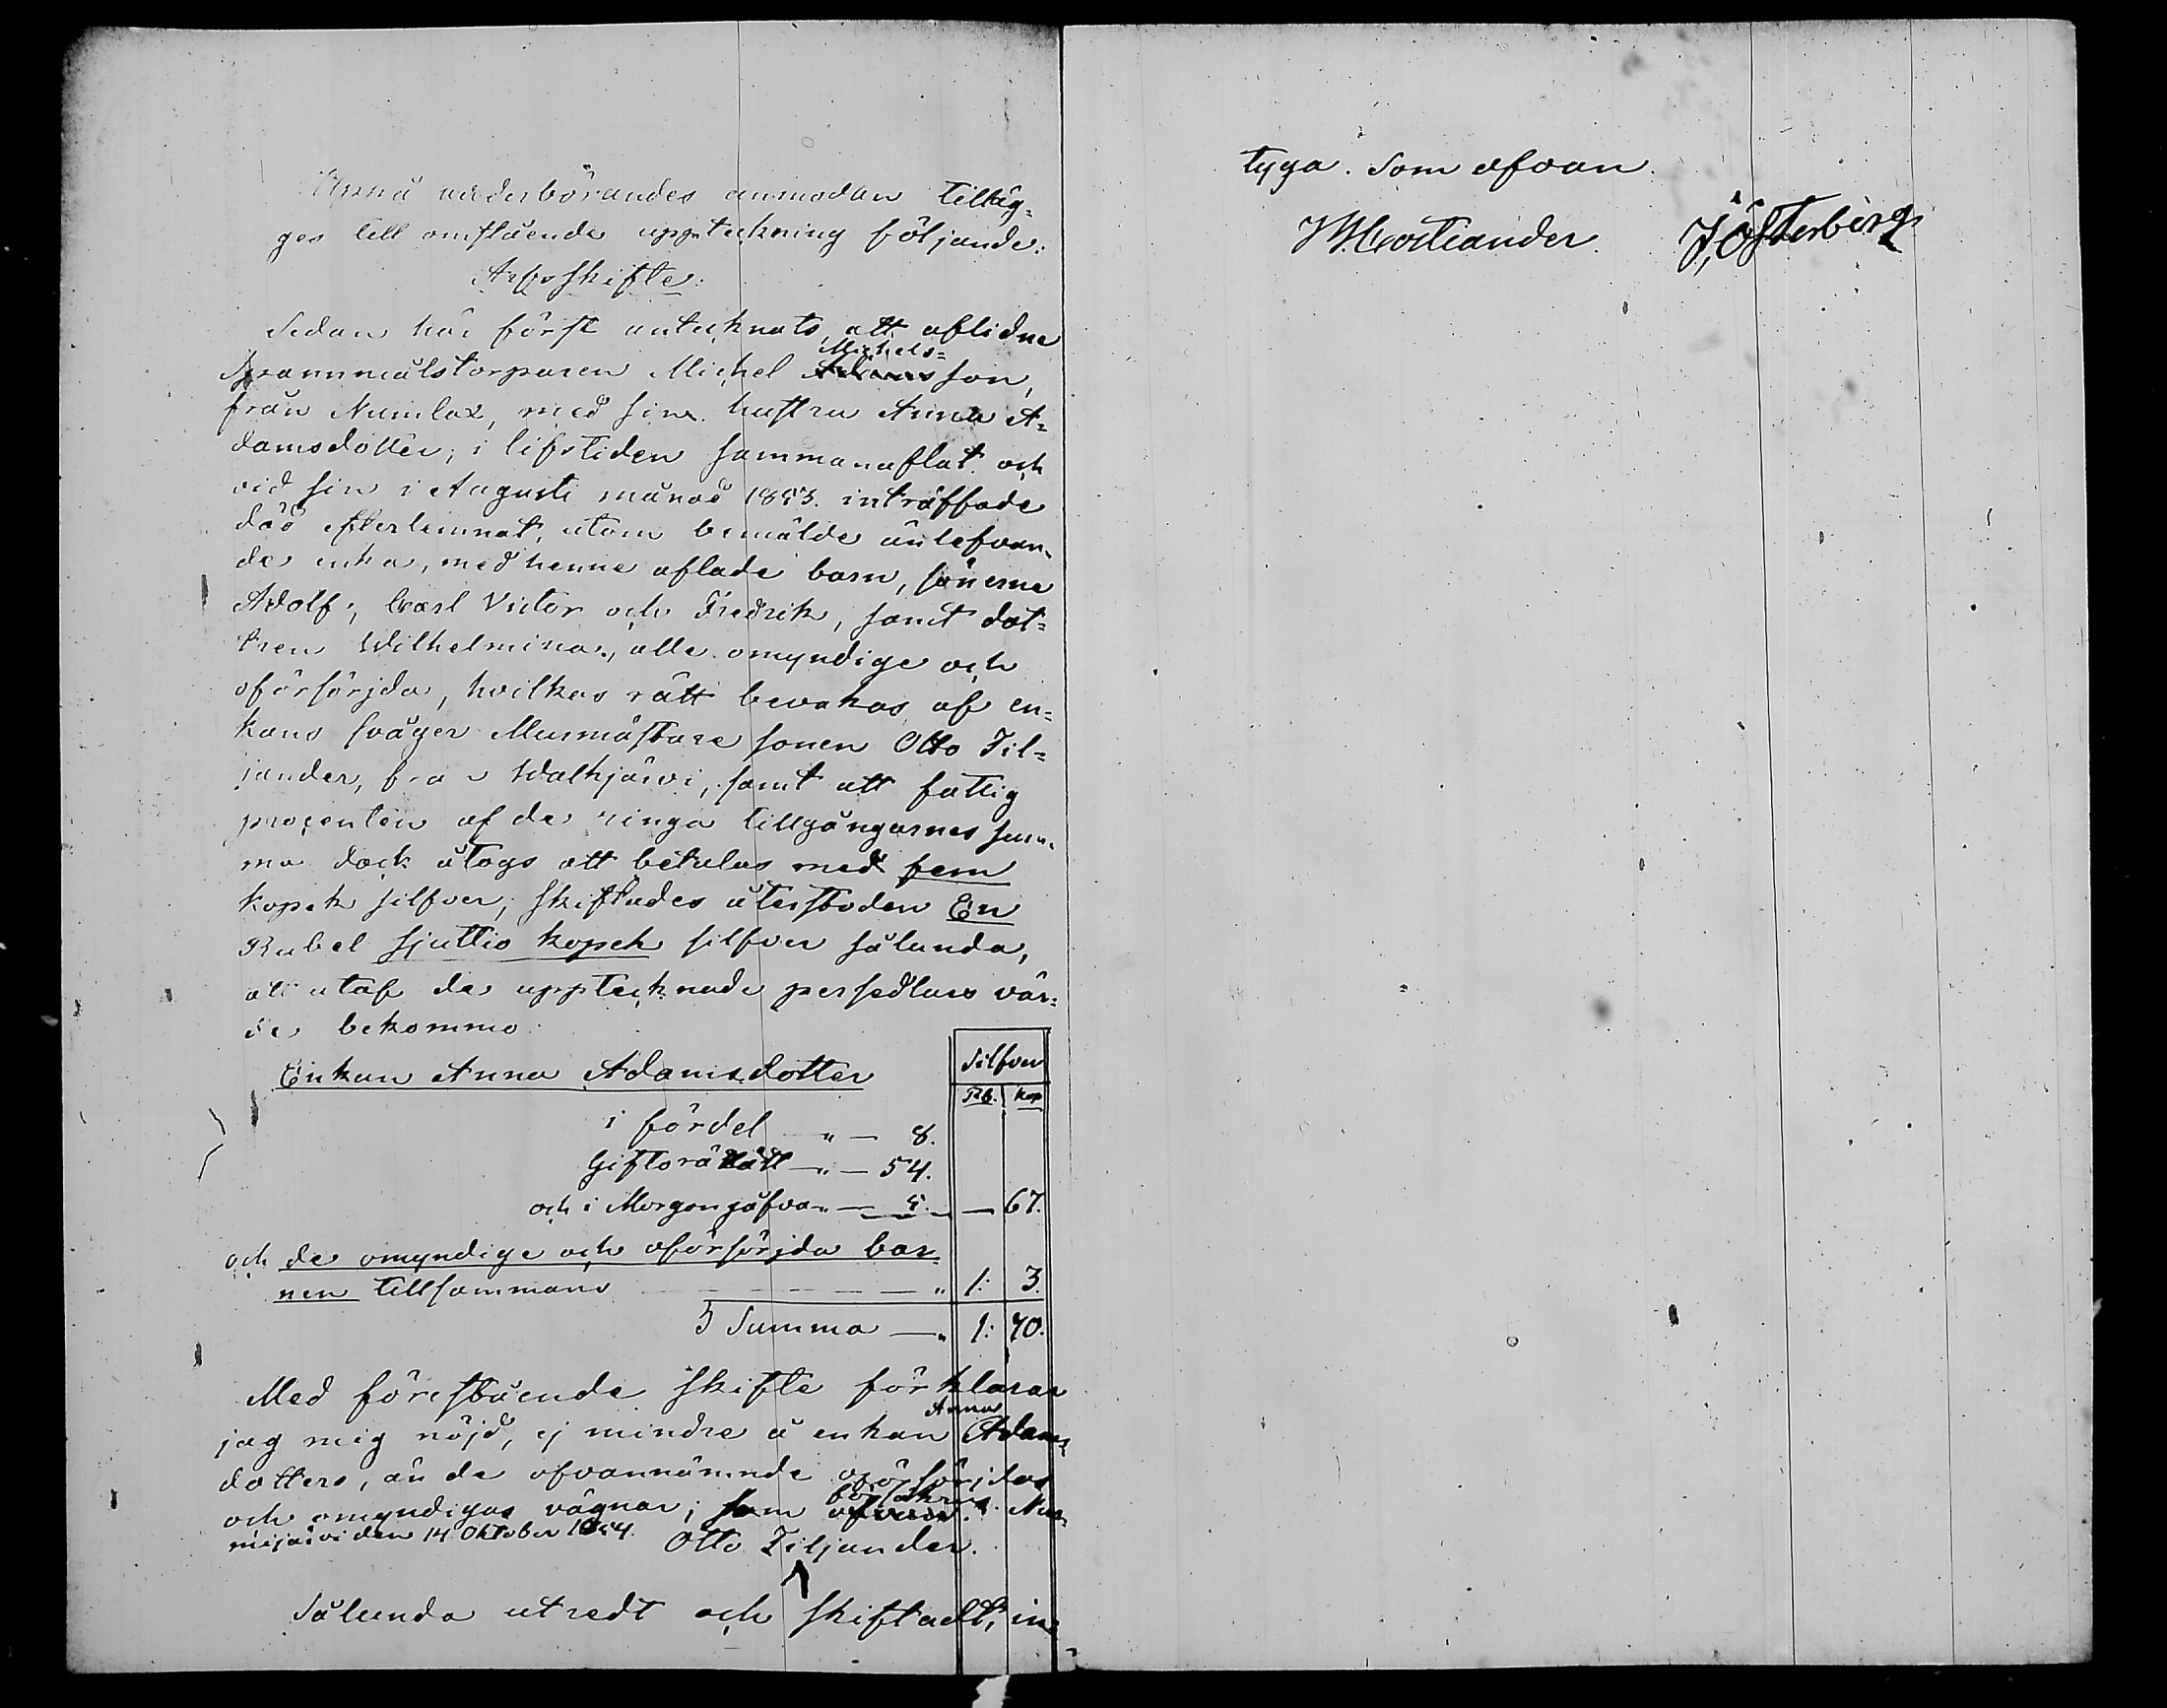 Uppå vederbörandes anmodan tilläg=
ges till omstående uppteckning följande:
Arfsskifte:
Sedan här först antecknats, att aflidne
Spannmålstorparen Michel Michels=
son,
från Numlax, med sin hustru Anna A=
damsdotter, i lifstiden sammanaflat och
vid sin i Augusti månad 1853 inträffade
död efterlemnat, utom bemälde änlefvan=
de enka, med henne aflade barn, sönerne
Adolf, Carl Victor och Fredrik, samt dot=
tren Wilhelmina, alle omyndige och
oförsörjda, hvilkas rätt bevakas af en=
kans svåger Murmästare sonen Otto Til=
jander, från Walkjärvi, samt att fattig
procenten af de ringa tillgångarnes sum=
ma dock åtogs att betalas med fem
kopek silfver; skiftades återstoden En
Rubel sjuttio kopek silfver sålunda,
att utaf de upptecknade persedlars vär=
de bekommo
Silfver
Enkan Anna Adamsdotter
Rb. kop
i fördel " — 8.
Giftorätt — " — 54.
och i Morgongåfva " — 5. — 67.
och de omyndige och oförsörjda bar=
nen tillsammans — " 1: 3.
S Summa — " 1: 70.
Med förestående skifte förklarar
jag mig nöjd, ej mindre å enkan Anna Adams
dotters, än de ofvannämnde oförsörjdas
och omyndigas vägnar; som Nur=
mijärvi den 14 Oktober 1854.
Otto Tiljander.
Sålunda utredt och skiftadt, in=
tyga. Som ofvan.
J. Österberg